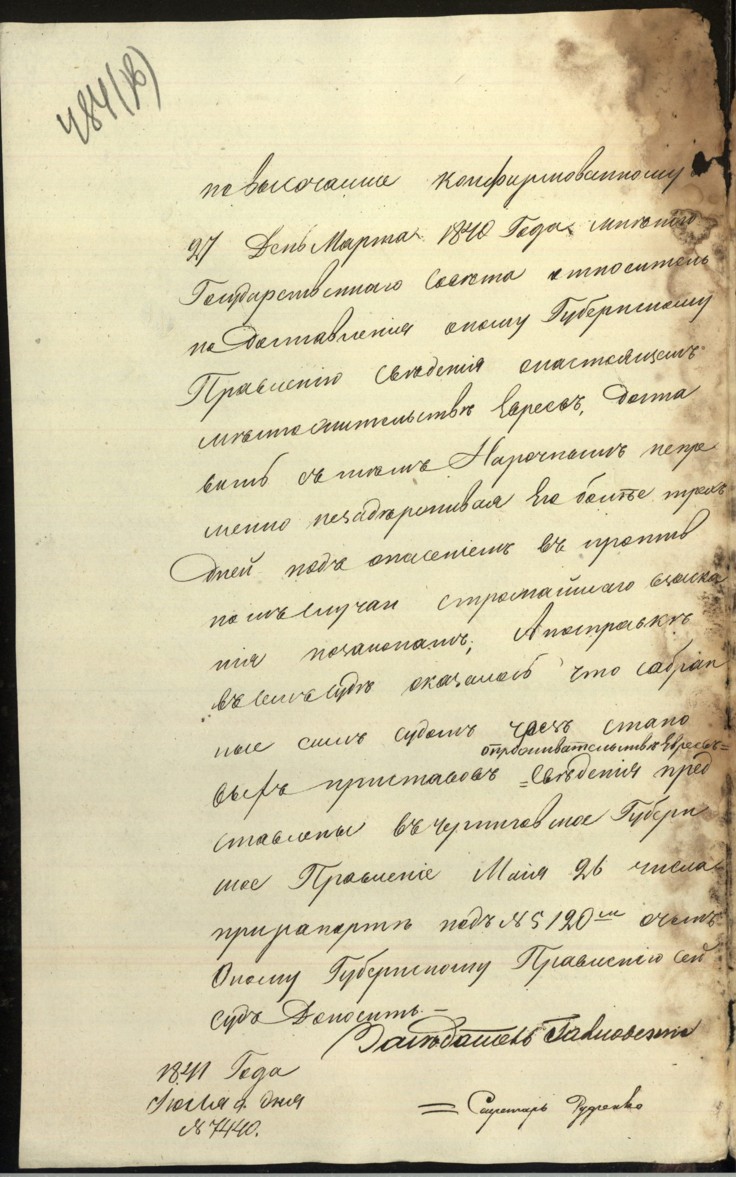 484(В)
повысочаише конфирмованному
27 День Марта 1840 Года мнѣнію
Государственнаго Совѣта относитель
но Доставленія оному Губернскому
Правленію свѣденія онастоящемъ
мѣстожительствѣ Евреевъ, Доста
вить съ симъ Нарочнымъ непре
менно незадѣрживая Его болѣе трехъ
дней подъ опасеніемъ въ против
номъ случаи строжайшаго взыска
нія позаконамъ; Апосправкѣ
въ семъ судѣ оказалось что собран
ные симъ судомъ чрезъ стано
опроживательствѣ Евреевъ=
выхъ приставовъ =свѣденія пред
ставлены въ черниговское Губерн
ское Правленіе Маія 26 числа
прирапортѣ подъ №5120мъ очемъ
Оному Губернскому Правленію сей
судъ Доноситъ.=
Засѣдатель
1841 Года
Іюля дня
№7440.
= Секретарь Рудченко